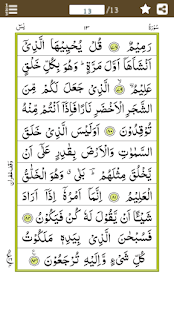 13 /13
سُوْرَةُ ١٣ يٰسٓ
رَمِيْمٌ ﴿٧٨﴾ قُلْ يُحْيِيْهَا الَّذِيْۤ
اَنْشَاَهَاۤ اَوَّلَ مَرَّةٍ ؕ وَهُوَ بِكُلِّ خَلْقٍ
عَلِيْمُ ﴿٧٩﴾ الَّذِيْ جَعَلَ لَكُمْ مِّنَ
الشَّجَرِ الْاَخْضَرِ نَارًا فَاِذَاۤ اَنْتُمْ مِّنْهُ
تُوْقِدُوْنَ ﴿٨٠﴾ اَوَلَيْسَ الَّذِيْ خَلَقَ
السَّمٰوٰتِ وَالْاَرْضَ بِقٰدِرٍ عَلٰۤى اَنْ
يَّخْلُقَ مِثْلَهُمْ ؕ بَلٰى وَهُوَ الْخَلّٰقُ
الْعَلِيْمُ ﴿٨١﴾ اِنَّمَاۤ اَمْرُهٗۤ اِذَاۤ اَرَادَ
شَيْـًٔا اَنْ يَّقُوْلَ لَهٗ كُنْ فَيَكُوْنُ ﴿٨٢﴾
فَسُبْحٰنَ الَّذِيْ بِيَدِهٖ مَلَكُوْتُ
كُلِّ شَيْءٍ وَّاِلَيْهِ تُرْجَعُوْنَ ﴿٨٣﴾